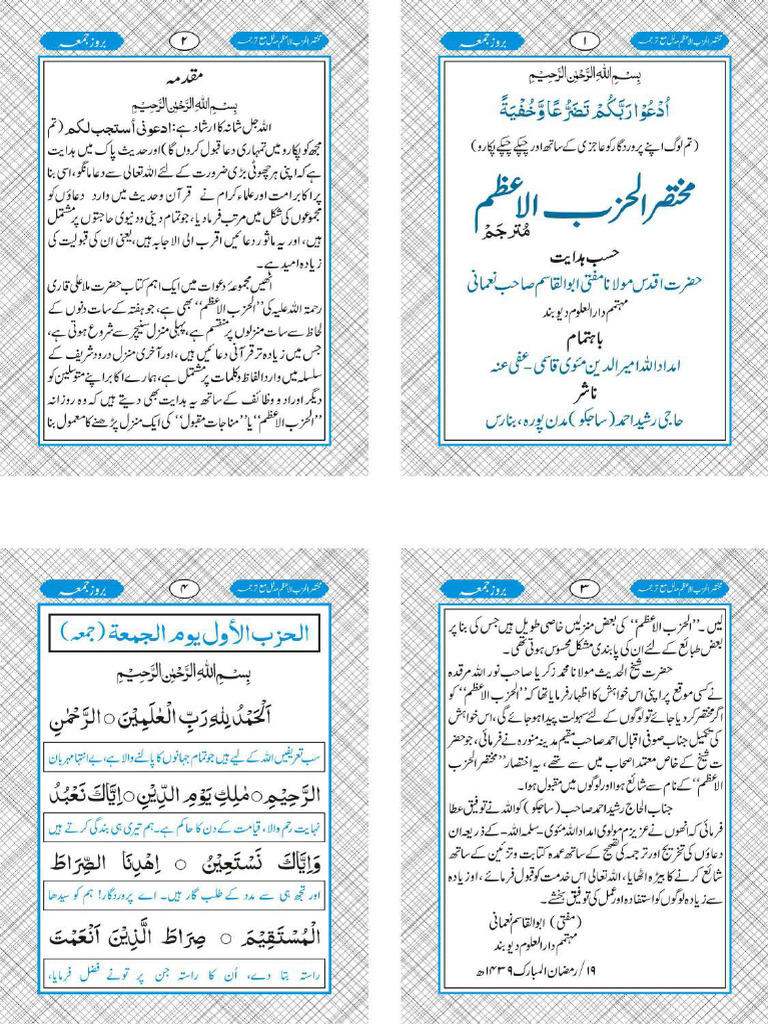 مختصر الحزب الاعظم مدلل مع ترجمہ ۱ بروز جمعہ
بِسْمِ اللهِ الرَّحْمٰنِ الرَّحِيْمِ
اُدْعُوْا رَبَّكُمْ تَضَرُّعًا وَّخُفْيَةً
(تم لوگ اپنے پروردگار کو عاجزی کے ساتھ اور چپکے چپکے پکارو)
مختصر الحزب الاعظم
مُترجَمْ
حسب ہدایت
حضرت اقدس مولانا مفتی ابوالقاسم صاحب نعمانی
مہتمم دارالعلوم دیوبند
باہتمام
امداد اللہ امیر الدین مئوی قاسمی - عفی عنہ
ناشر
حاجی رشید احمد (ساجکو) مدن پورہ، بنارس
مختصر الحزب الاعظم مدلل مع ترجمہ ۲ بروز جمعہ
مقدمہ
بِسْمِ اللهِ الرَّحْمٰنِ الرَّحِيْمِ
اللہ جل شانہ کا ارشاد ہے: ادعونی أستجب لكم (تم
مجھ کو پکارو میں تمہاری دعا قبول کروں گا) اور حدیث پاک میں ہدایت
ہے کہ اپنی ہر چھوٹی بڑی ضرورت کے لئے اللہ تعالی سے دعا مانگو، اسی بنا
پر اکابر امت اور علماء کرام نے قرآن و حدیث میں وارد دعاؤں کو
مجموعوں کی شکل میں مرتب فرمادیا، جو تمام دینی و دنیوی حاجتوں پر مشتمل
ہیں، اور یہ ماثور دعائیں اقرب الی الاجابہ ہیں، یعنی ان کی قبولیت کی
زیادہ امید ہے۔
انھیں مجموعۂ دعوات میں ایک اہم کتاب حضرت ملا علی قاری
رحمۃ اللہ علیہ کی ”الحزب الاعظم“ بھی ہے، جو ہفتہ کے سات دنوں کے
لحاظ سے سات منزلوں پر منقسم ہے، پہلی منزل سنیچر سے شروع ہوتی ہے،
جس میں زیادہ تر قرآنی دعائیں ہیں، اور آخری منزل درود شریف کے
سلسلہ میں وارد الفاظ و کلمات پر مشتمل ہے، ہمارے اکابر اپنے متوسلین کو
دیگر اوراد و وظائف کے ساتھ یہ ہدایت بھی دیتے ہیں کہ وہ روزانہ
”الحزب الاعظم“ یا ”مناجات مقبول“ کی ایک منزل پڑھنے کا معمول بنا
مختصر الحزب الاعظم مدلل مع ترجمہ ۳ بروز جمعہ
لیں۔ ”الحزب الاعظم“ کی بعض منزلیں خاصی طویل ہیں جس کی بنا پر
بعض طبائع کے لئے ان کی پابندی مشکل محسوس ہوتی تھی۔
حضرت شیخ الحدیث مولانا محمد زکریا صاحب نور اللہ مرقدہ
نے کسی موقع پر اپنی اس خواہش کا اظہار فرمایا تھا کہ ”الحزب الاعظم“ کو
اگر مختصر کر دیا جائے تو لوگوں کے لئے سہولت پیدا ہو جائے گی، اس خواہش
کی تکمیل جناب صوفی اقبال احمد صاحب مقیم مدینہ منورہ نے فرمائی، جو حضر
ت شیخ کے خاص معتمد اصحاب میں سے تھے، یہ اختصار ”مختصر الحزب الا
عظم“ کے نام سے شائع ہوا اور لوگوں میں مقبول ہوا۔
جناب الحاج رشید احمد صاحب (ساجکو) کو اللہ نے توفیق عطا
فرمائی کہ انھوں نے عزیزم مولوی امداد اللہ مئوی - سلمہ اللہ - کے ذریعہ ان
دعاؤں کی تخریج اور ترجمہ کی تصحیح کے ساتھ عمدہ کتابت و تزئین کے ساتھ
شائع کرنے کا بیڑہ اٹھایا، اللہ تعالی اس خدمت کو قبول فرمائے، اور زیادہ
سے زیادہ لوگوں کو استفادہ اور عمل کی توفیق بخشے۔
(مفتی) ابوالقاسم نعمانی
مہتمم دارالعلوم دیوبند
۱۹/رمضان المبارک ۱۴۳۹ھ
مختصر الحزب الاعظم مدلل مع ترجمہ ۴ بروز جمعہ
الحزب الأول يوم الجمعة (جمعہ)
بِسْمِ اللهِ الرَّحْمٰنِ الرَّحِيْمِ
اَلْحَمْدُ لِلّٰهِ رَبِّ الْعٰلَمِيْنَ ○ الرَّحْمٰنِ
سب تعریفیں اللہ کے لیے ہیں جو تمام جہانوں کا پالنے والا ہے، بے انتہا مہربان
الرَّحِيْمِ ○ مٰلِكِ يَوْمِ الدِّيْنِ ○ اِيَّاكَ نَعْبُدُ
نہایت رحم والا، قیامت کے دن کا حاکم ہے۔ ہم تیری ہی بندگی کرتے ہیں
وَاِيَّاكَ نَسْتَعِيْنُ ○ اِهْدِنَا الصِّرَاطَ
اور تجھ ہی سے مدد کے طلب گار ہیں۔ اے پروردگار! ہم کو سیدھا
الْمُسْتَقِيْمَ ○ صِرَاطَ الَّذِيْنَ اَنْعَمْتَ
راستہ بتا دے، اُن کا راستہ جن پر تونے فضل فرمایا،